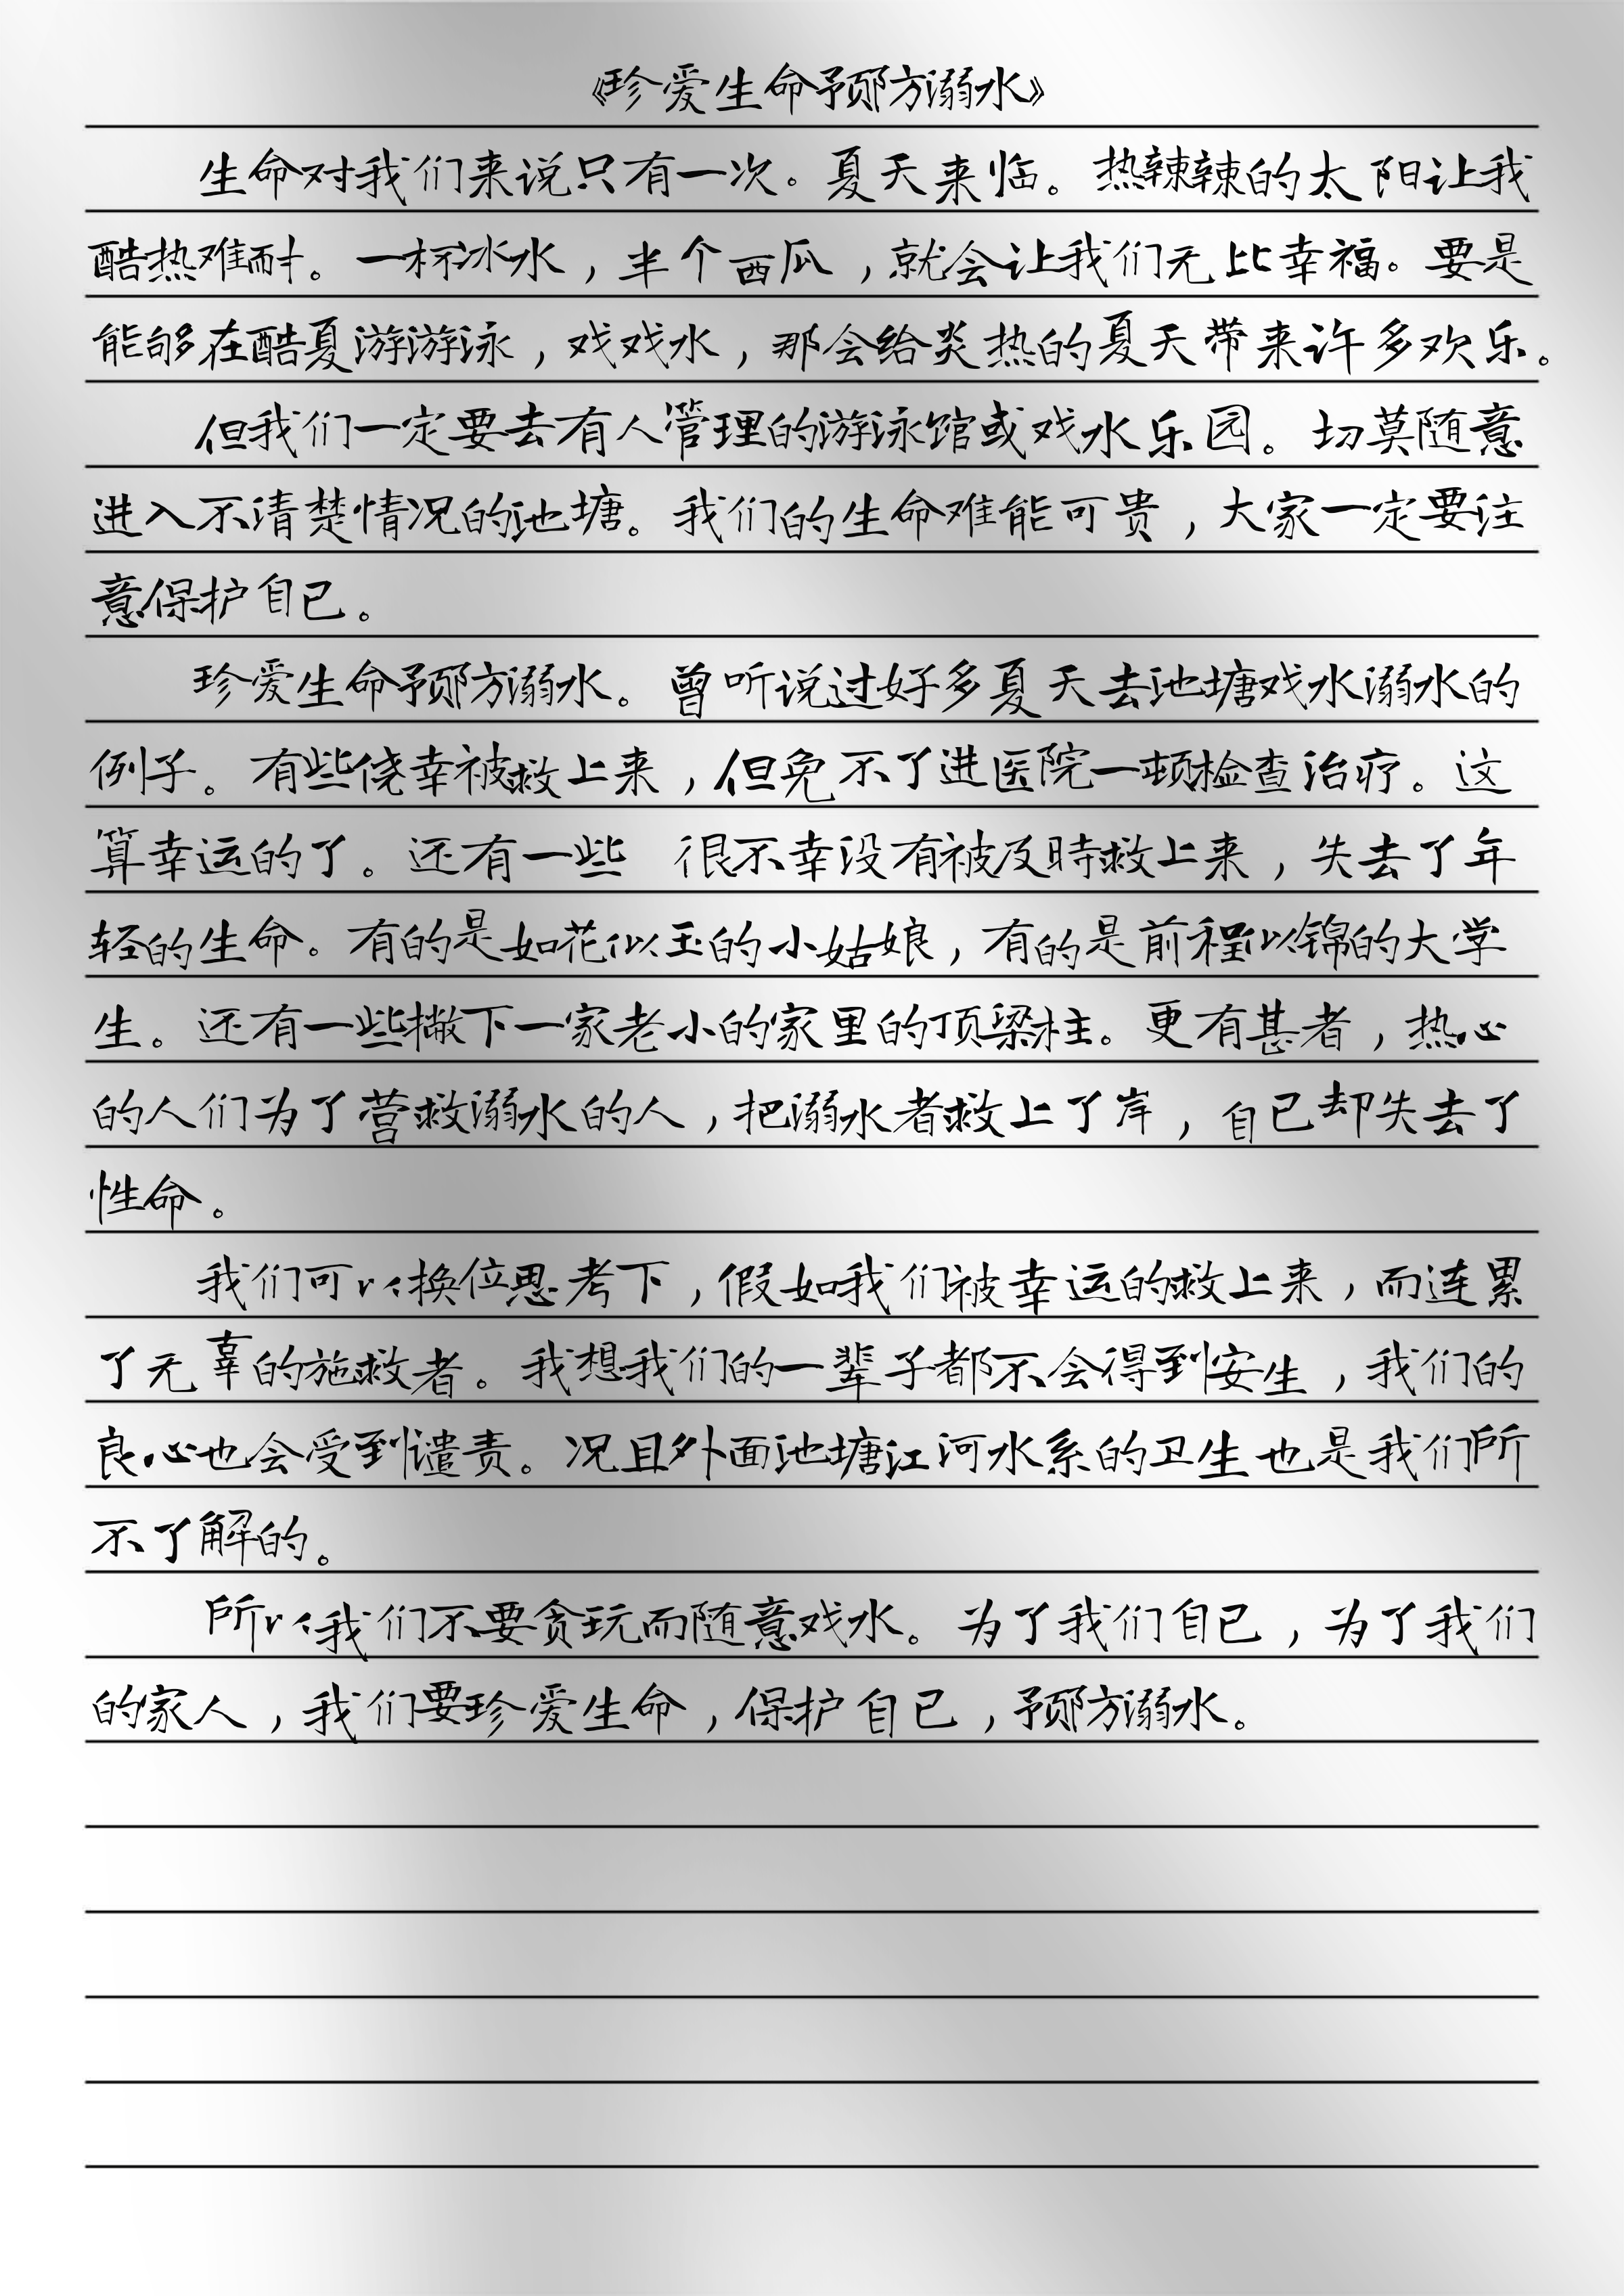 《珍爱生命预防溺水》
生命对我们来说只有一次。夏天来临。热辣辣的太阳让我
酷热难耐。一杯冰水，半个西瓜，就会让我们无比幸福。要是
能够在酷夏游游泳，戏戏水，那会给炎热的夏天带来许多欢乐。
但我们一定要去有人管理的游泳馆或戏水乐园。切莫随意
进入不清楚情况的池塘。我们的生命难能可贵，大家一定要注
意保护自己。
珍爱生命预防溺水。曾听说过好多夏天去池塘戏水溺水的
例子。有些侥幸被救上来，但免不了进医院一顿检查治疗。这
算幸运的了。还有一些 很不幸没有被及時救上来，失去了年
轻的生命。有的是如花似玉的小姑娘，有的是前程似锦的大学
生。还有一些撇下一家老小的家里的顶梁柱。更有甚者，热心
的人们为了营救溺水的人，把溺水者救上了岸，自己却失去了
性命。
我们可以换位思考下，假如我们被幸运的救上来，而连累
了无辜的施救者。我想我们的一辈子都不会得到安生，我们的
良心也会受到谴责。况且外面池塘江河水系的卫生也是我们所
不了解的。
所以我们不要贪玩而随意戏水。为了我们自己，为了我们
的家人，我们要珍爱生命，保护自己，预防溺水。